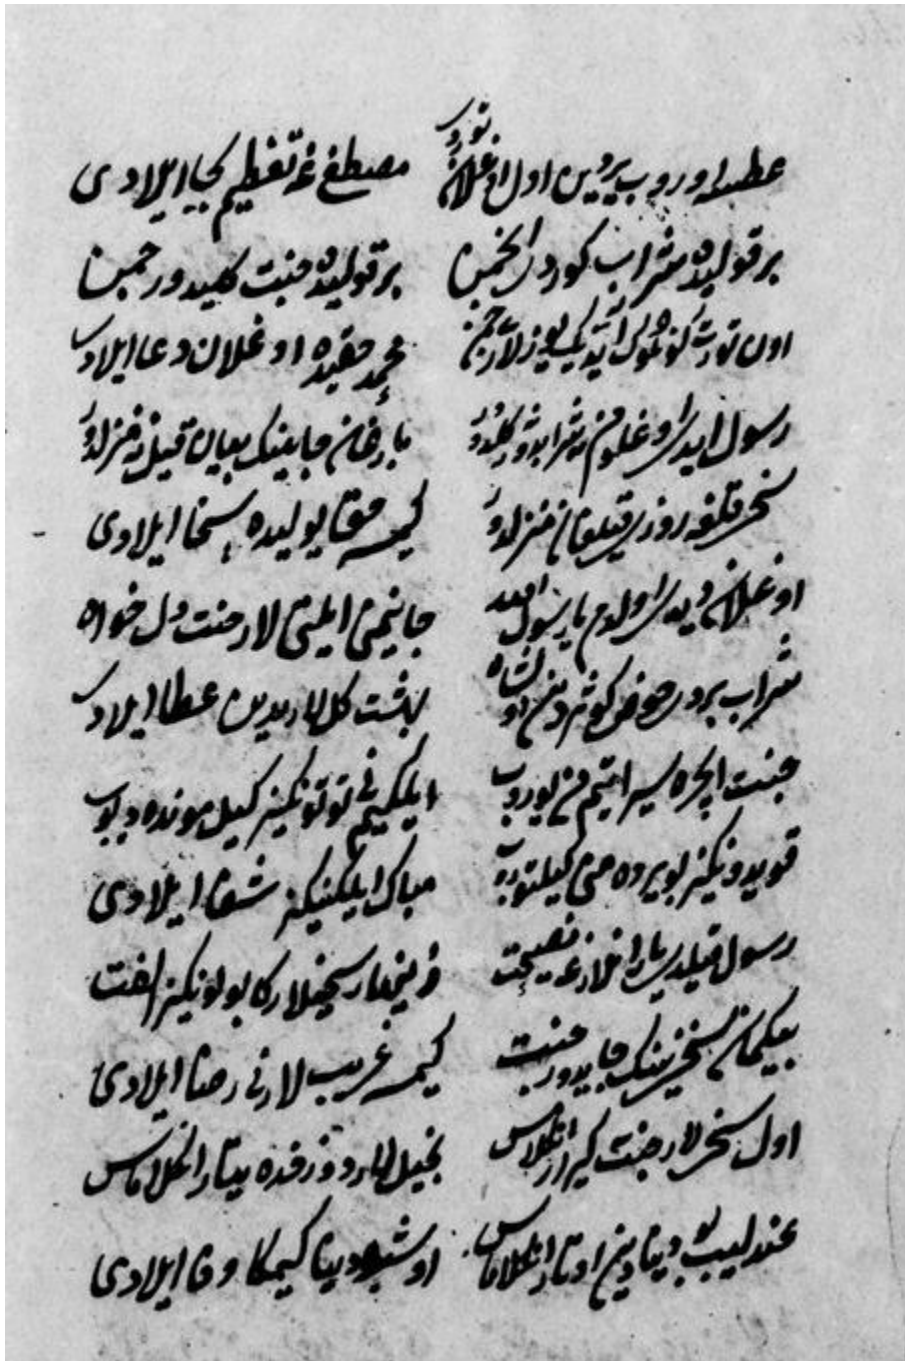 عطسه اوروب یردین اول اوغلان توردی مصطفی غه تعظیم بجا ایلادی
بر قولیده شراب کوردی انجمن بر قولیده جنت کلیدور چمن
محمد حقیده اوغلان دعا ایلادی
رسول ایدی اوغلوم بارغان جاینک بیان قیل
سخی قلغه روزی قیلغان منزلدور کیمسه حق یولیده سخا ایلادی
اوغلان دیدی اولدم یا رسول الله جانیمنی ایلتی لار جنت دل خواه
شراب بردی حوض کوثردین اول شاه بهشت کل لاریدین عطا ایلادی
جنت ایچره سیر ایتیم من یوروب ایلکیمنی توتونکیز کیل مونده دیوب
قویدونکیز بو یرده منی کیلتوروب مبارک ایلکینکیز شفا ایلادی
رسول قیلدی یارانلارغه نصیحت زینهار سخیلارکا بولونکیز الفت
بیکمان سخی ننک جایدور جنت کیمسه غریب لارنی رضا ایلادی
اول سخی لار جنت کیرار انکلاماس بخیل لار دوزخده یتار انکلاماس
عندلیب بو دنیادین اوتار انکلاماس اوشبو دنیا کیمکا وفا ایلادی